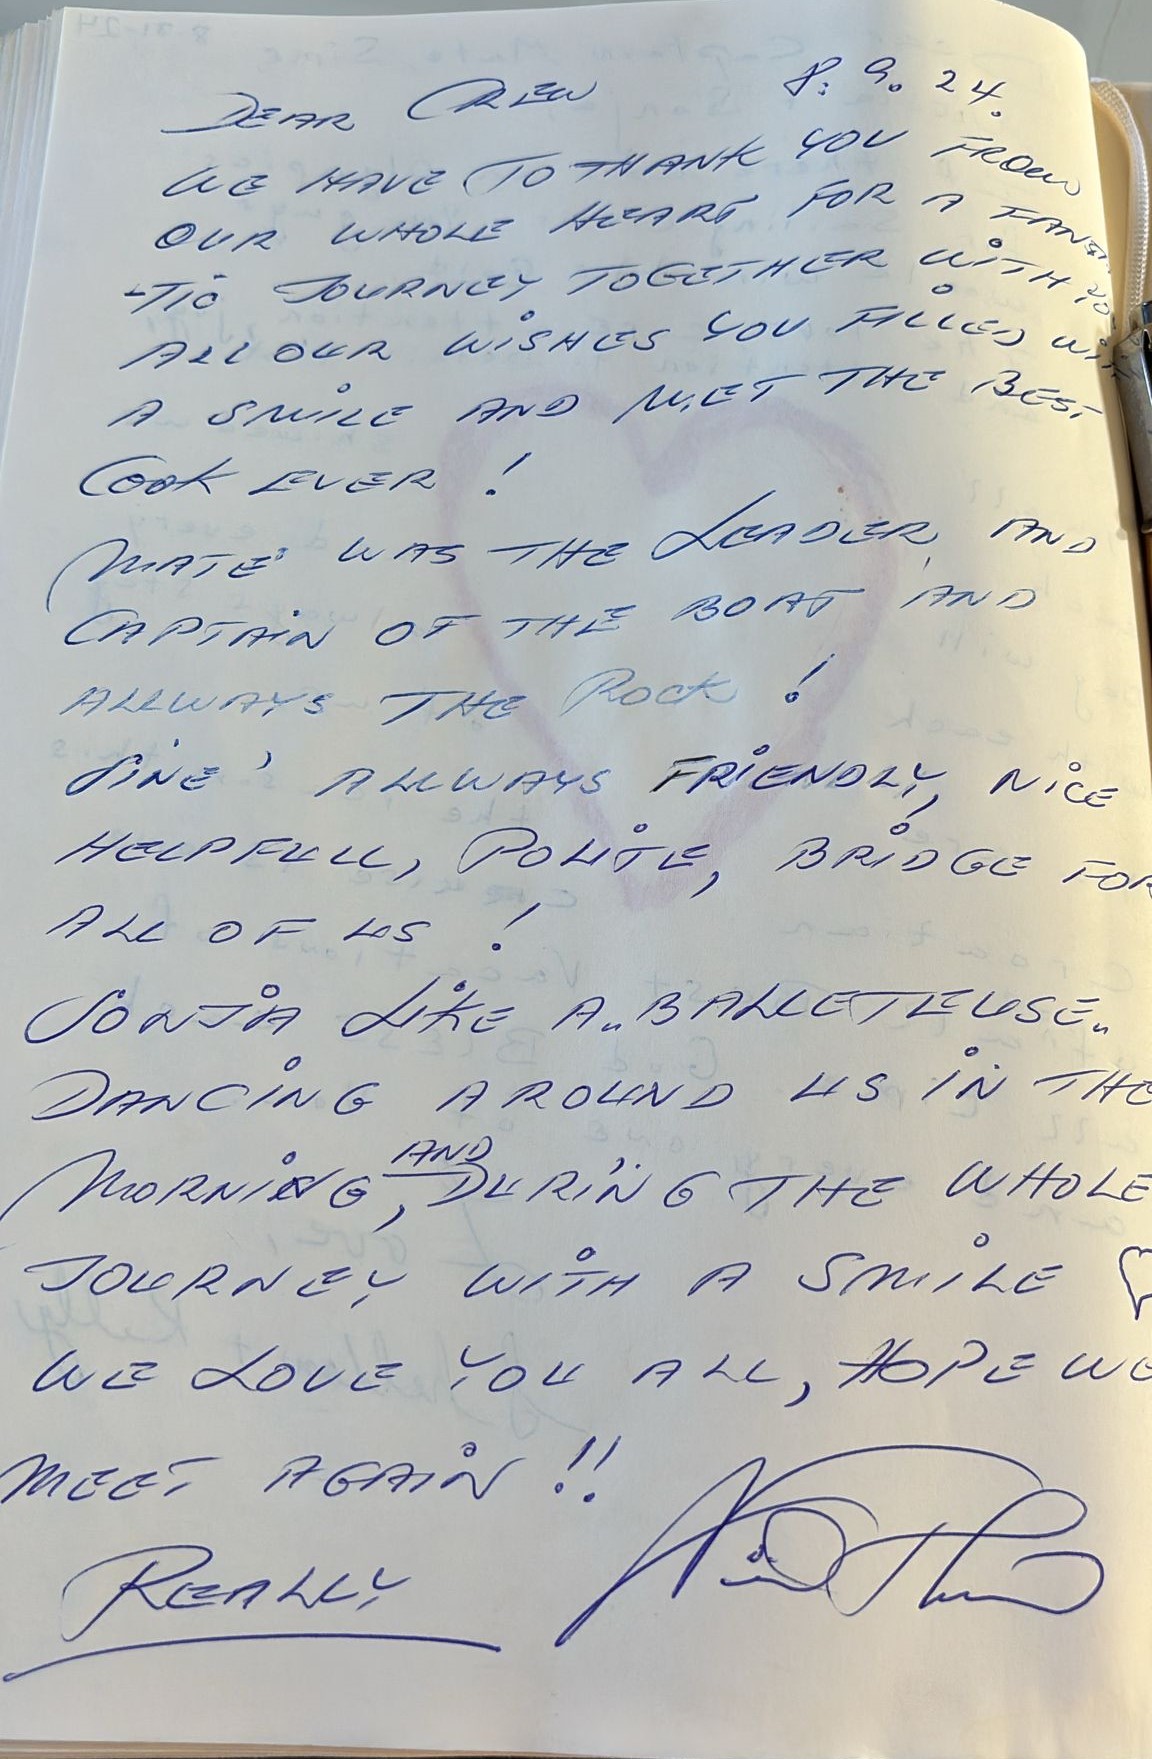 DEAR CREW 8. 9. 24.
WE HAVE TO THANK YOU FROM
OUR WHOLE HEART FOR A FANTAS
-TIC JOURNEY TOGETHER WITH YO
ALL OUR WISHES YOU FILLED WITH
A SMILE AND MEET THE BEST
COOK EVER !
MATE' WAS THE LEADER, AND
CAPTAIN OF THE BOAT AND
ALLWAYS THE ROCK !
SINE' ALLWAYS FRIENDLY, NICE
HELPFULL, POLITE, BRIDGE FOR
ALL OF US !
SONJA LIKE A „BALLETEUSE„
DANCING AROUND US IN THE
MORNING, AND DURING THE WHOLE
JOURNEY WITH A SMILE ♡
WE LOVE YOU ALL, HOPE WE
MEET AGAIN !!
REALLY